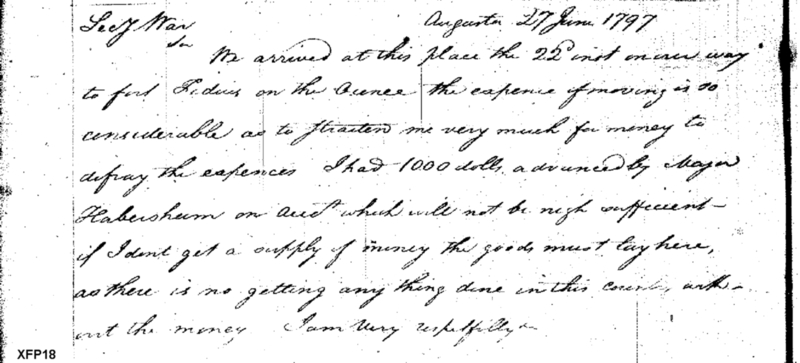 Secy War Augusta 27 June 1797
Sir
We arrived at this place the 22d inst on our way
to fort Fidius on the Oconee the expence of moving is so
considerable as to straiten me very much for money to
defray the expences I had 1000 dolls. advanced by Major
Habersham on Acct. which will not be nigh sufficient—
if I dont get a supply of money the goods must lay here,
as there is no getting any thing done in this country with-
out the money I am Very respetfully
XFP18